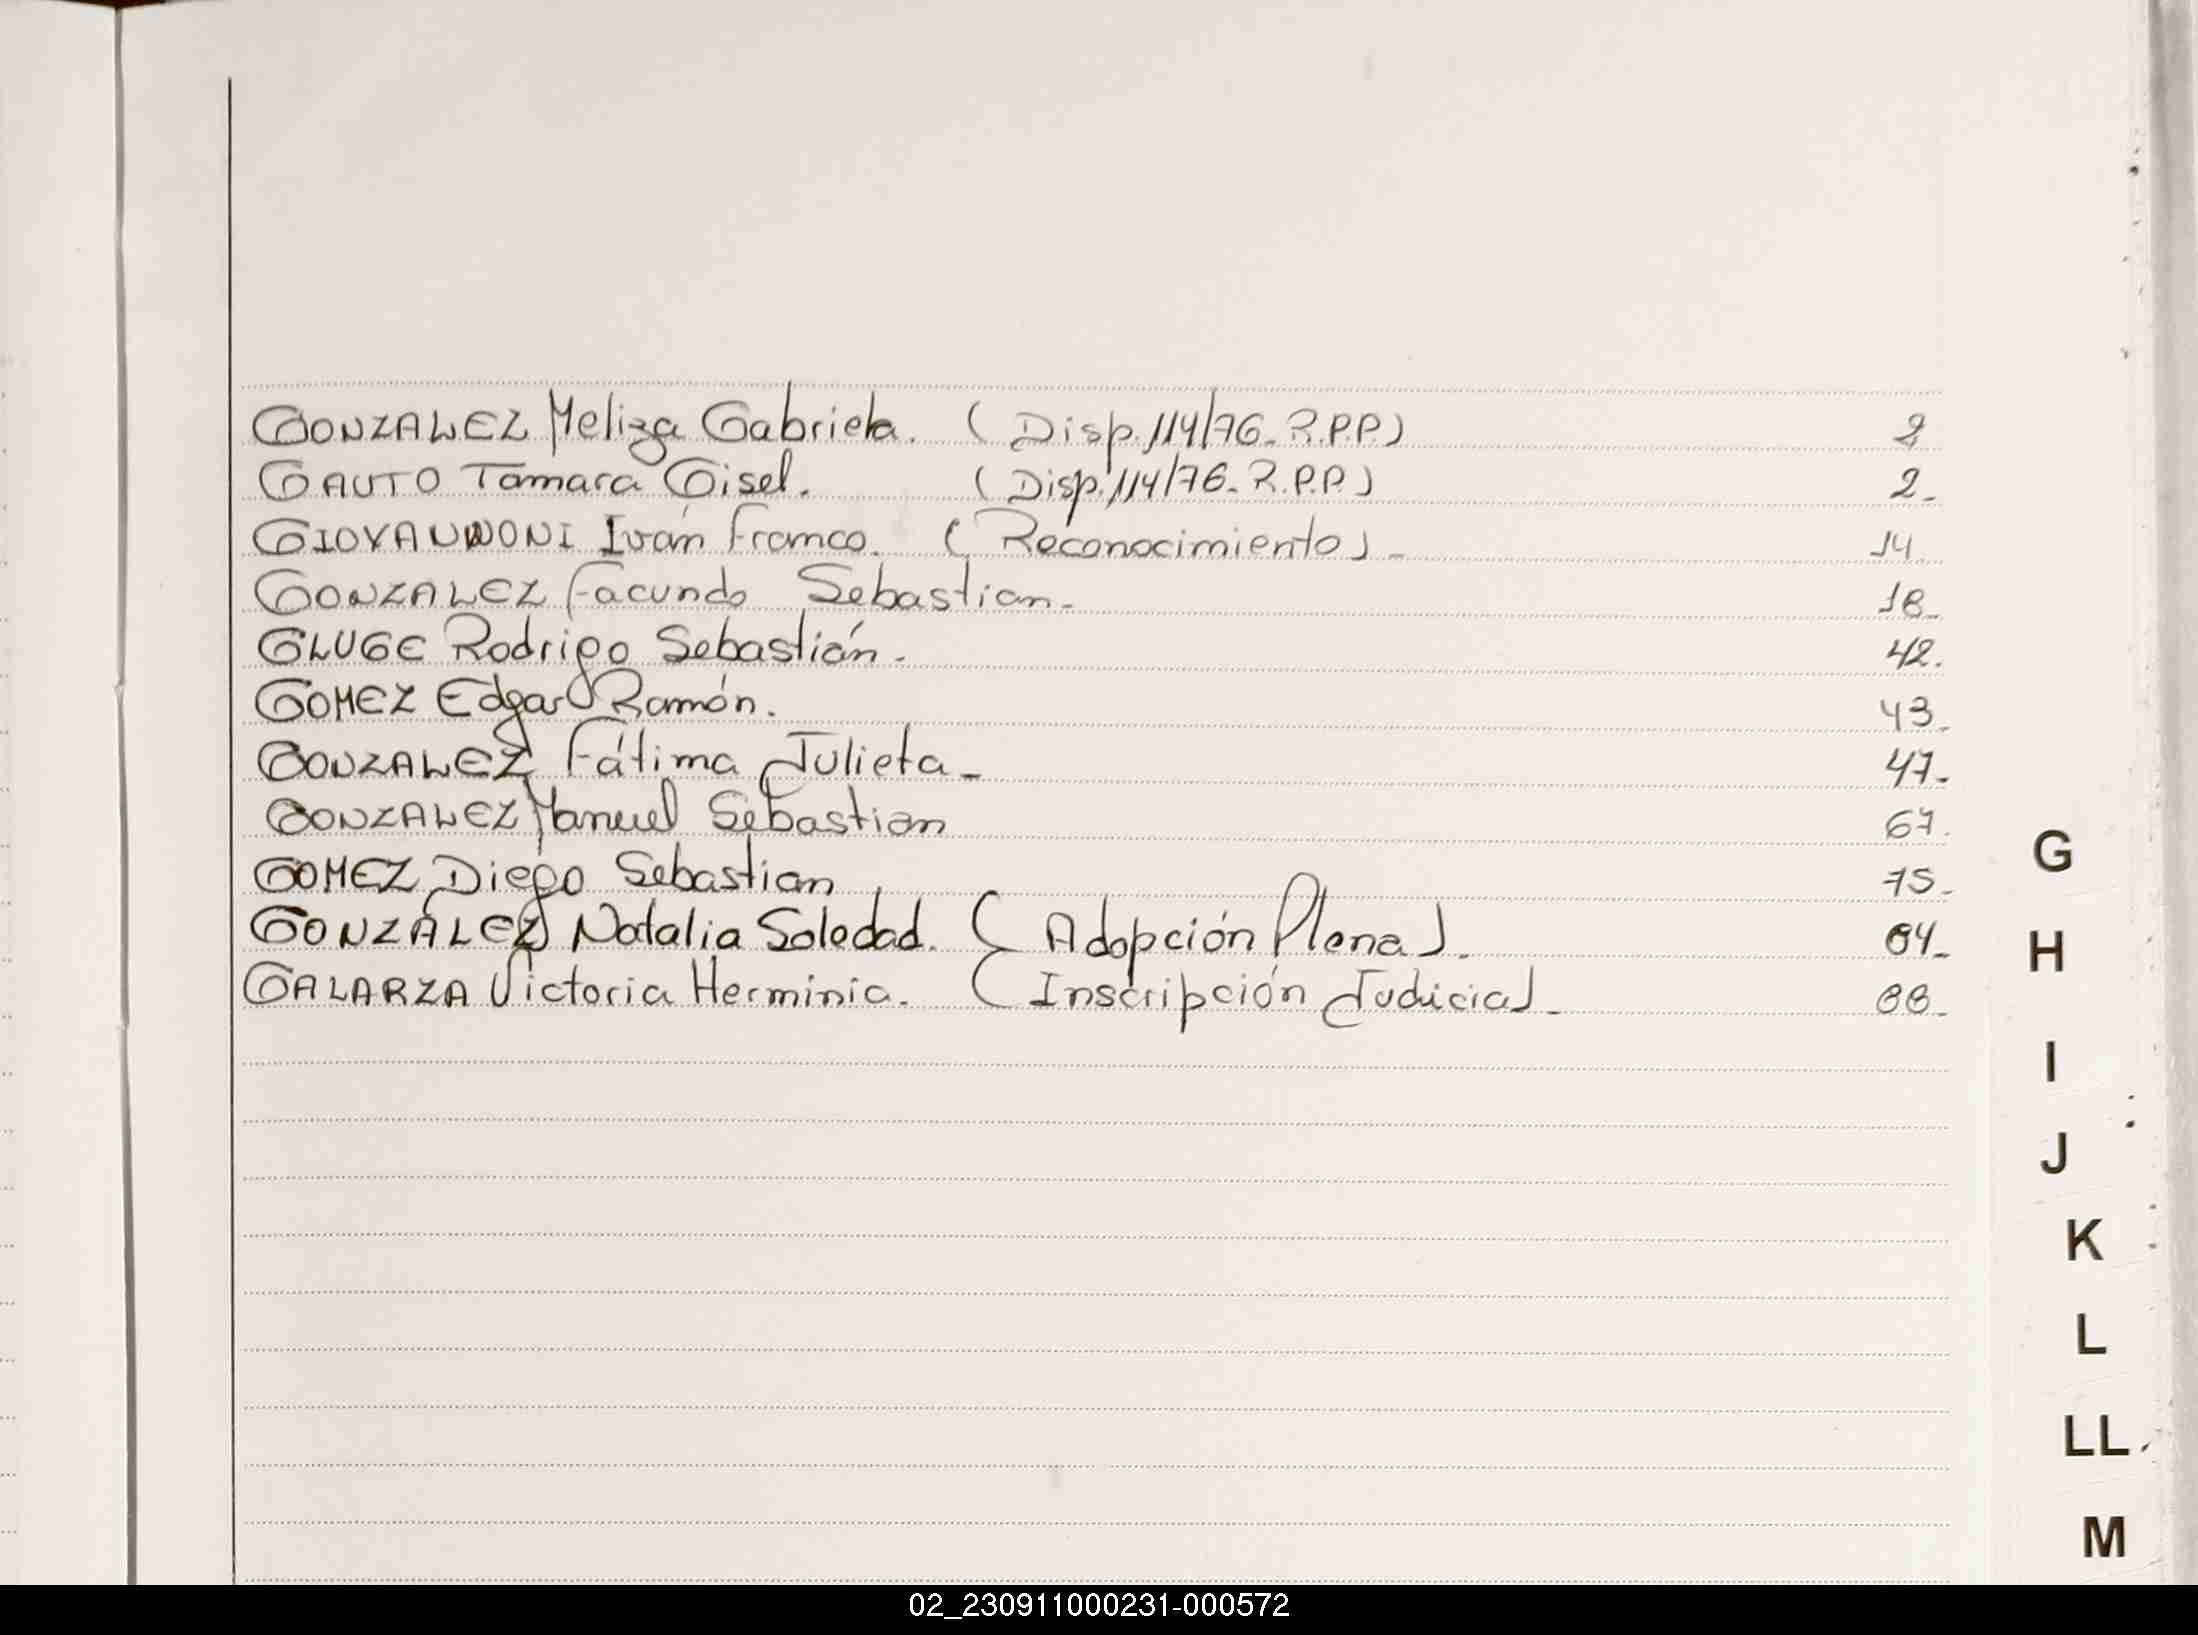 GONZALEZ Meliza Gabriela. (Disp. 114/76-R.P.P.) 2
GAUTO Tamara Gisel. (Disp. 114/76-R.P.P.) 2-
GIOVANNONI Iván Franco. (Reconocimiento)- 14
GONZALEZ Facundo Sebastian- 18-
GLUGE Rodrigo Sebastián- 42.
GOMEZ Edgar Ramón. 43-
GONZALEZ Fátima Julieta- 47-
GONZALEZ Manuel Sebastian 67.
GOMEZ Diego Sebastian 75-
GONZALEZ Natalia Soledad. (Adopción Plena)- 84-
GALARZA Victoria Herminia. (Inscripción Judicial- 88-
G
H
I
J
K
L
LL
M
02_230911000231-000572